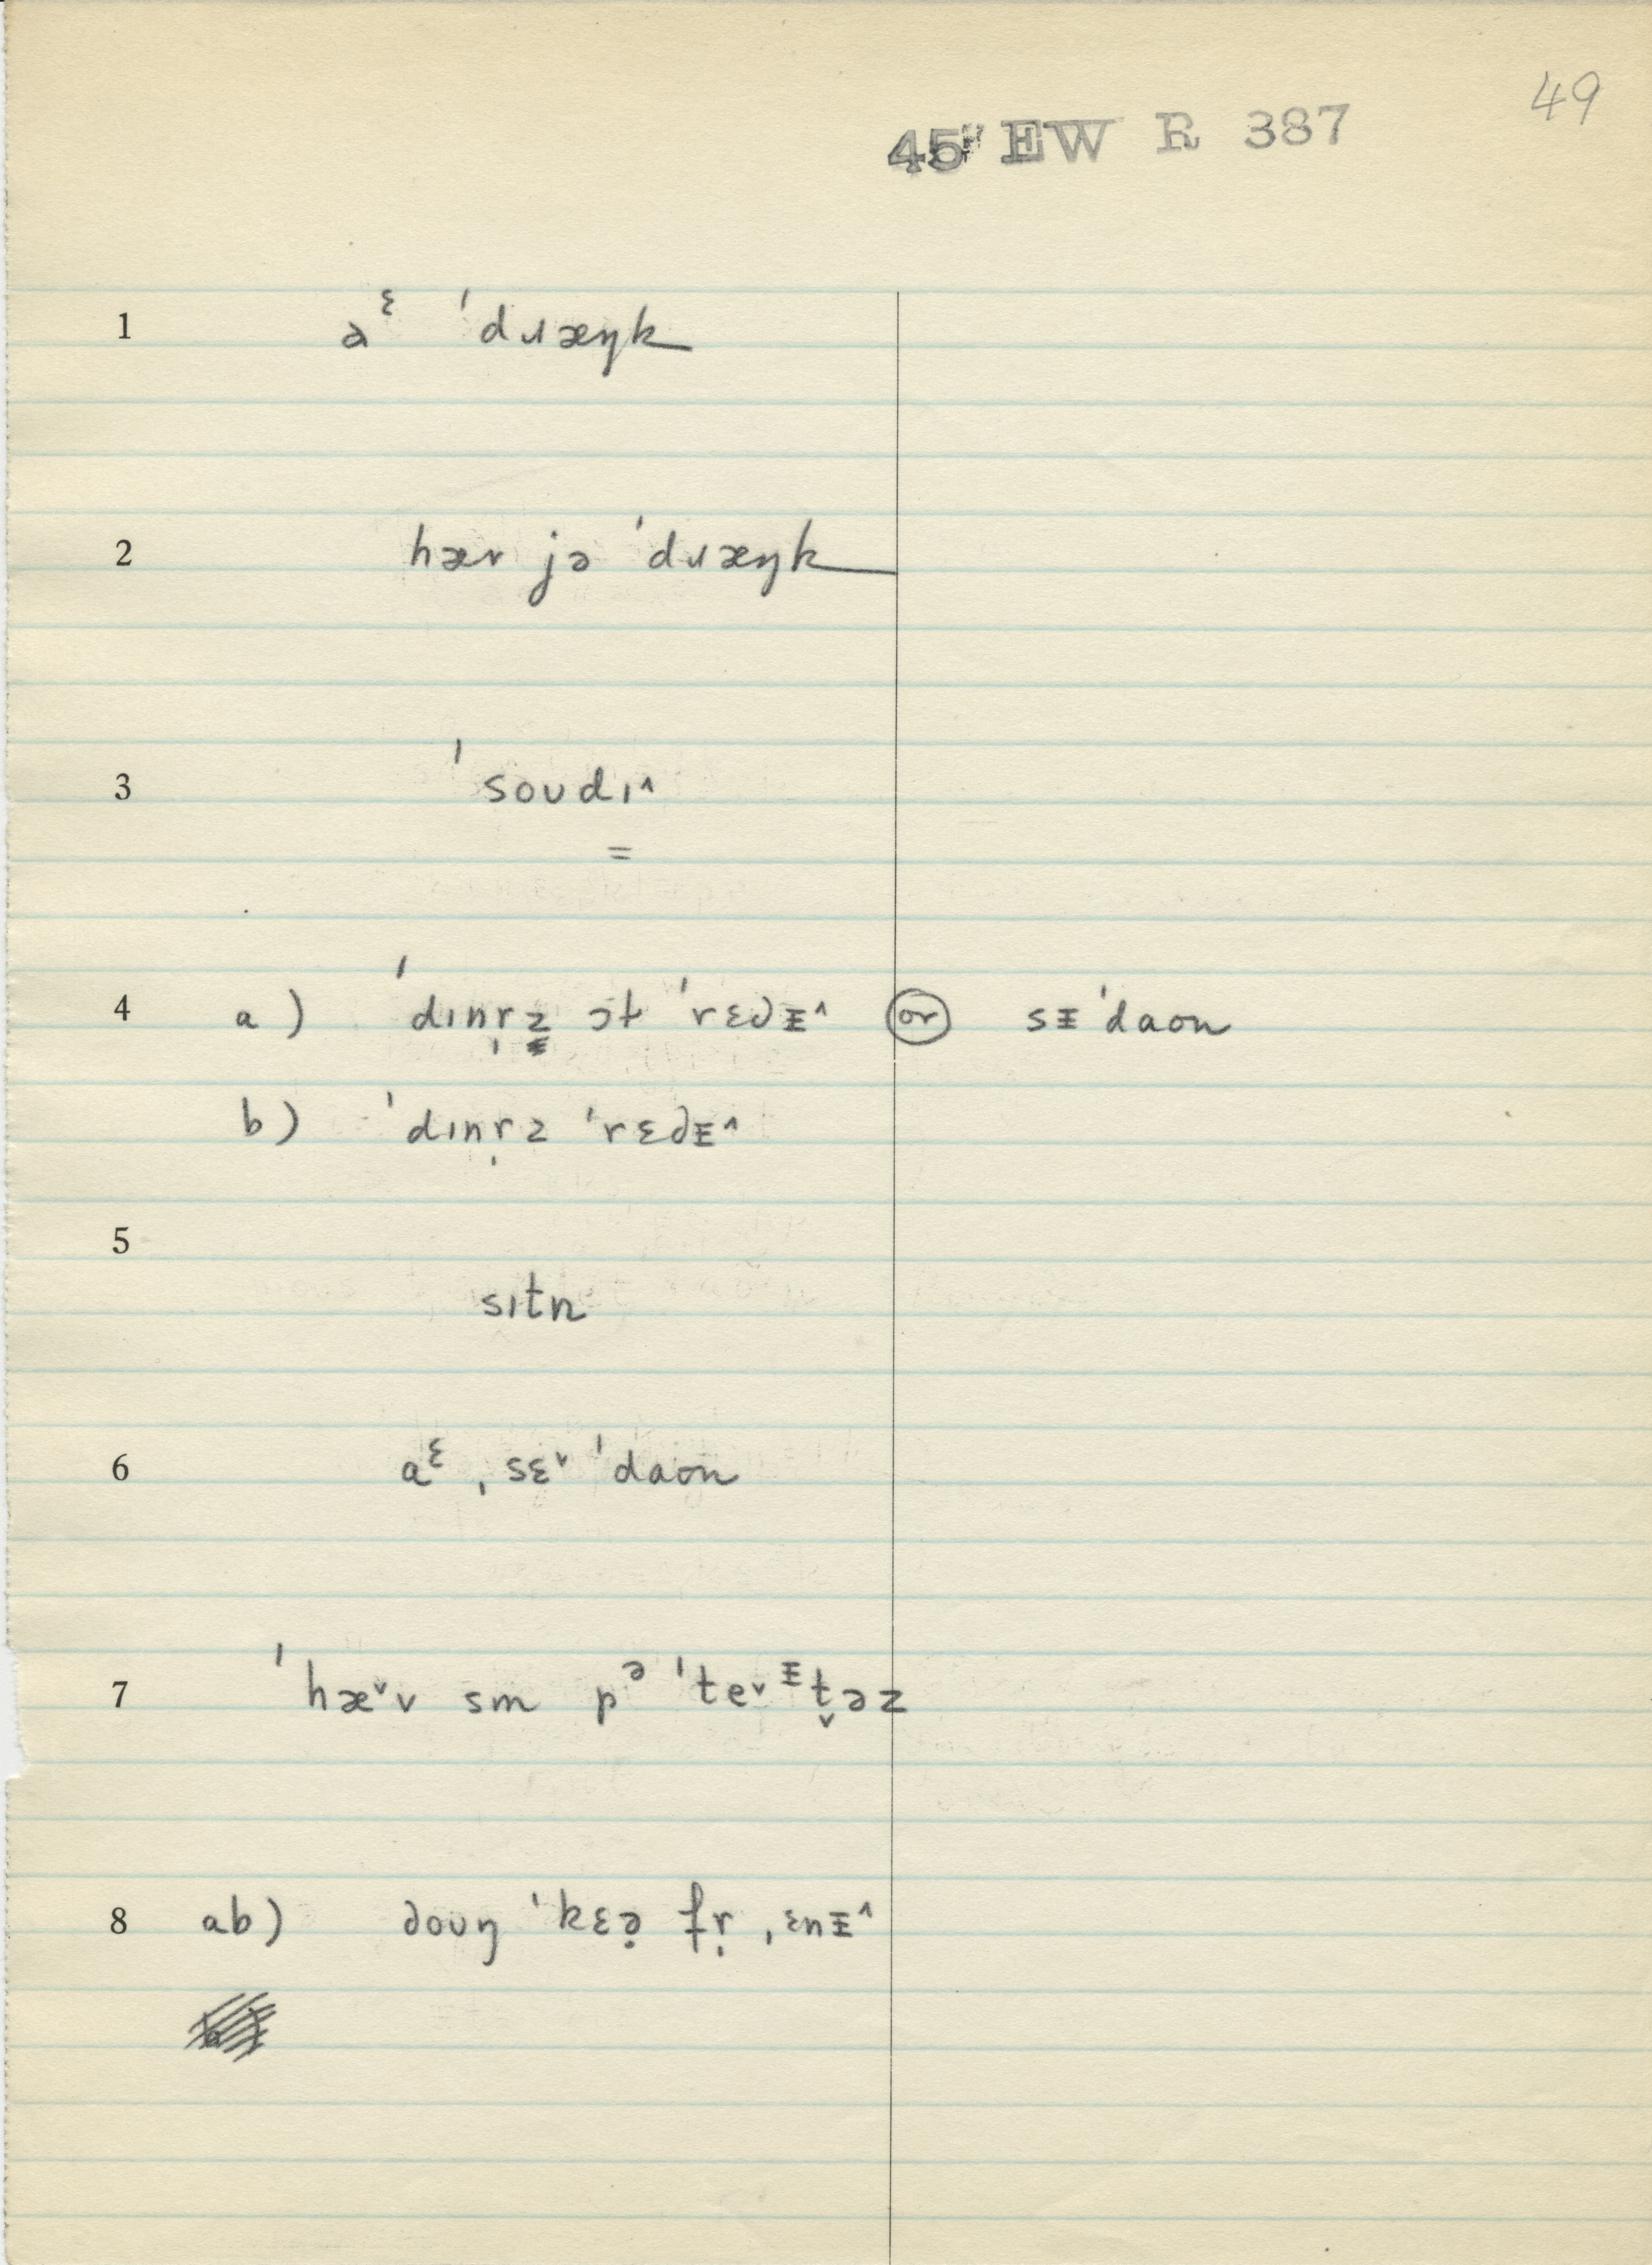 49
45 EW R 387
1 aᵋ ˈdɹæŋk
2 hær jə ˈdɹæŋk
3 ˈsoʊdɪ^
=
4 a) ˈdɪnr̩z ɔt ˈrɛdᵻ^ or sᵻˈdaon
b) ˈdɪnr̩z ˈrɛdᵻ^
5
sɪtn
6 aᵋ ˌsɛˇ ˈdaon
7 ˈhæˇv sm pᵊ ˈteˇᵻt̬əz
8 ab) doʊŋ ˈkɛə̣ fṛ ˌɛnᵻ^